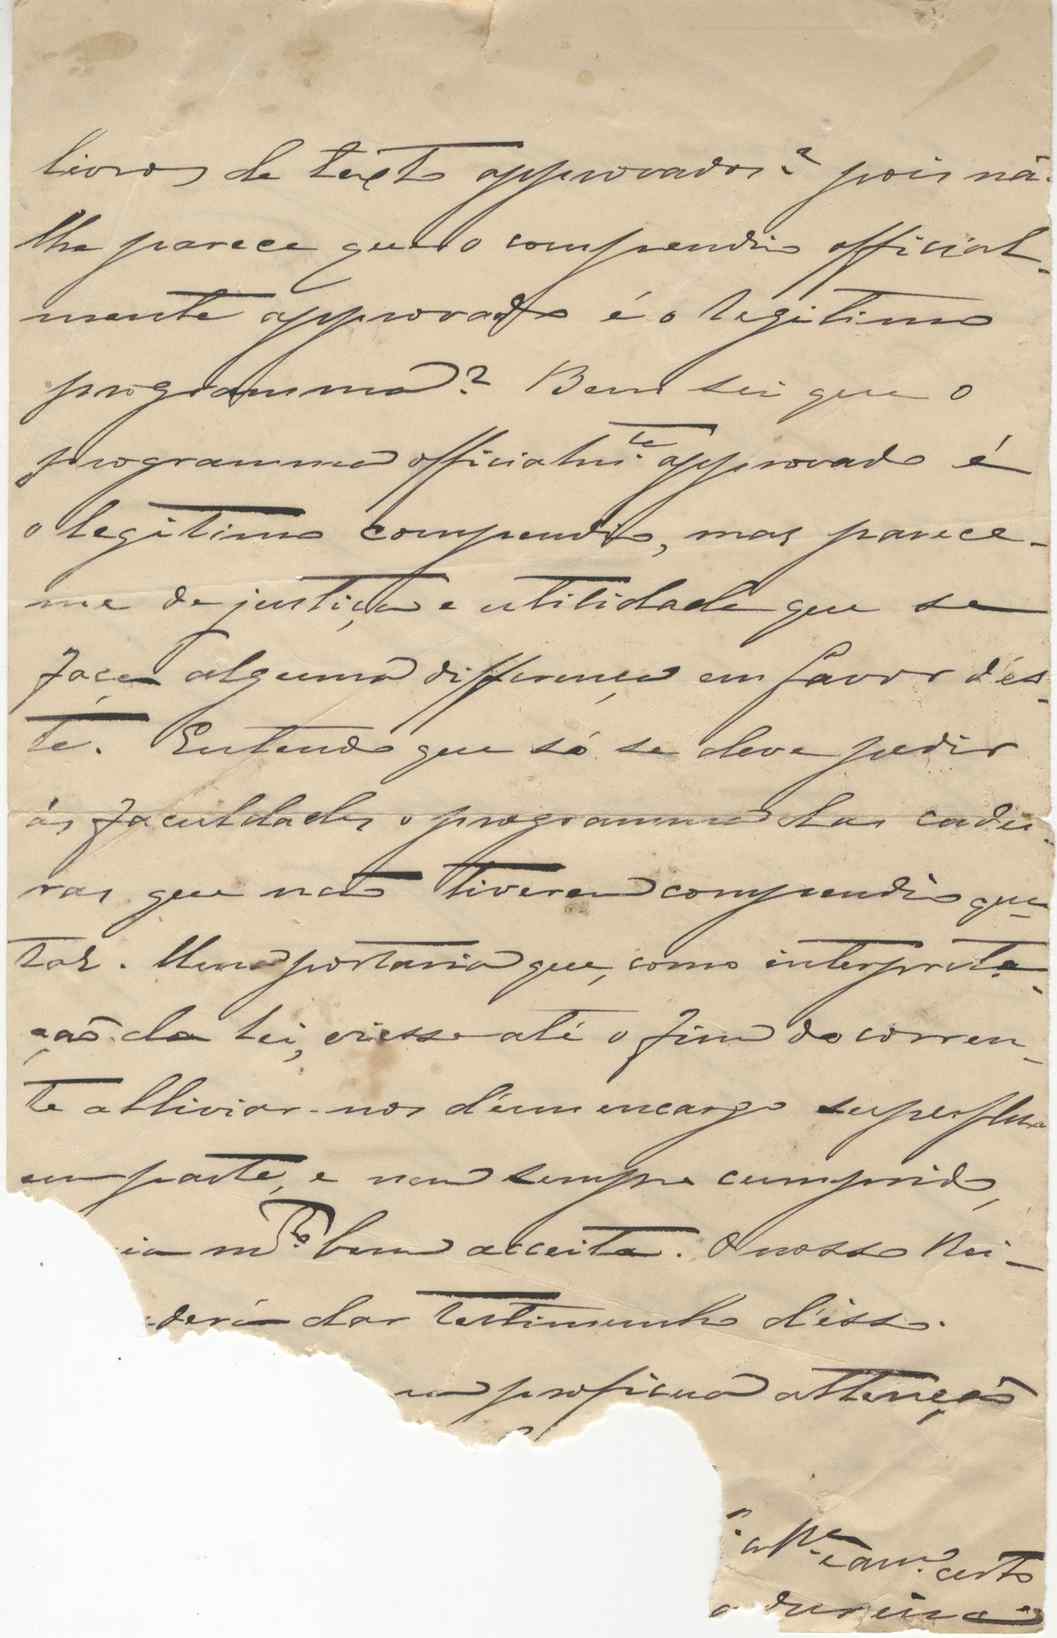 livros de texto approvados? pois nã
lhe parece que o compendio official-
mente approvado é o legitimo
programma? Bem sei que o
programma officialm.te approvado é
o legitimo compendio, mas parece-
me de justiça e utilidade que se
faça alguma differença em favor d'es-
te. Entendo que só se deve pedir
ás faculdades o programma das cadei-
ras que não tiverem compendio que-
taes. Uma portaria que, como interpreta-
ção da lei, viesse até o fim do corren-
te alliviar-nos d'um encargo superfluo
em parte, e nem sempre cumprido,
ia m.to bem acceita. O nosso Rei-
derá dar testimunho d'isso.
proficua attenção
am.o certo